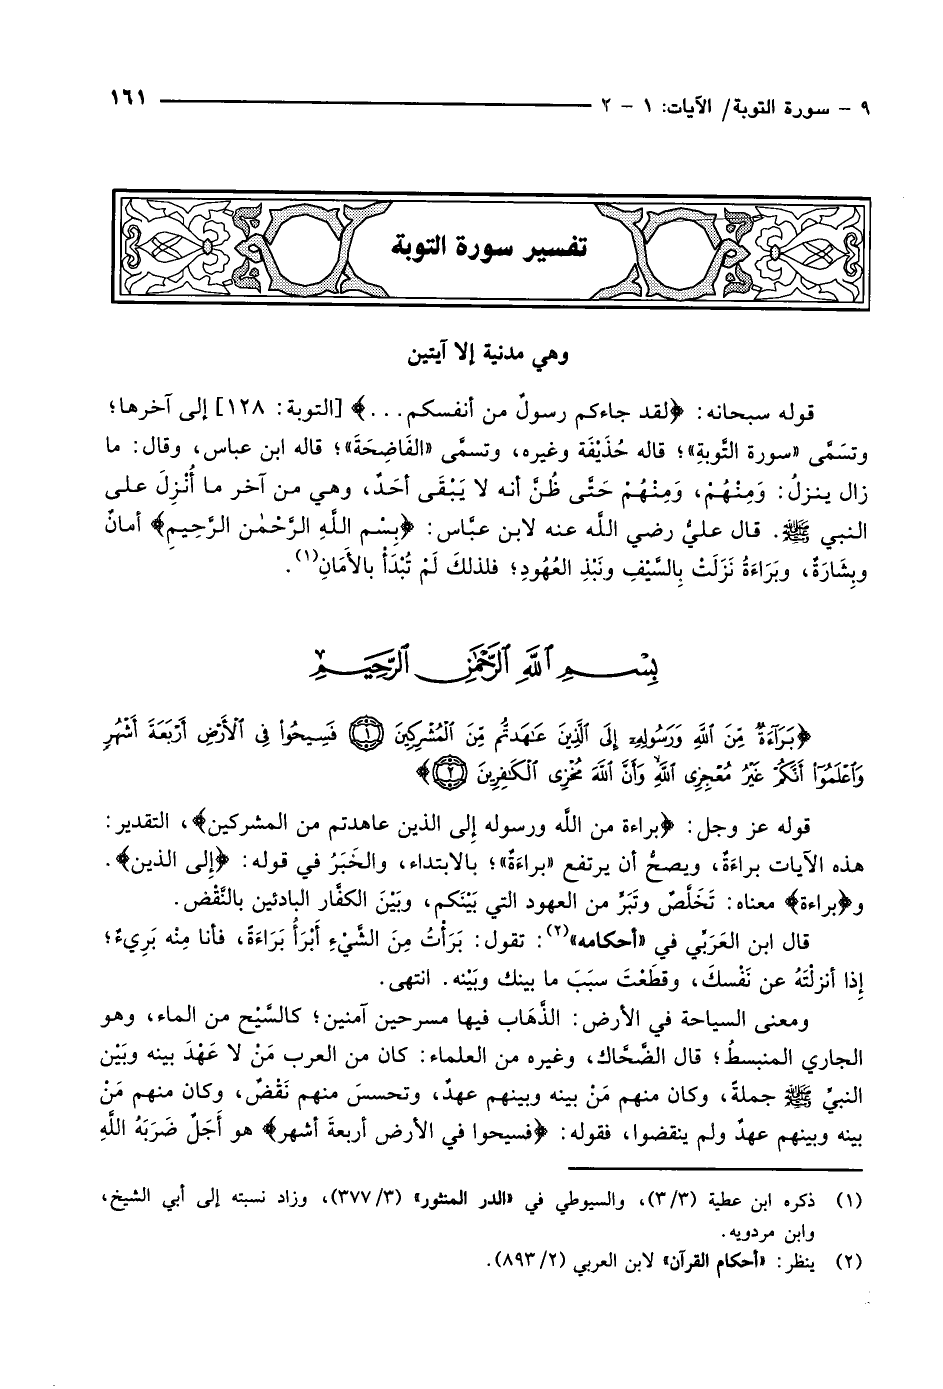 ٩ - سورة التوبة/ الآيات: ١ - ٢ ١٦١
تفسير سورة التوبة
وهي مدنية إلا آيتين
قوله سبحانه: ﴿لقد جاءكم رسولٌ من أنفسكم...﴾ [التوبة: ١٢٨] إلى آخرها؛
وتسَمَّى «سورة التَّوبةِ»؛ قاله حُذَيْفَة وغيره، وتسمَّى «الفَاضِحَةَ»؛ قاله ابن عباس، وقال: ما
زال ينزلُ: وَمِنْهُمْ، وَمِنْهُمْ حَتَّى ظُنَّ أنه لا يَبْقَى أحَدٌ، وهي من آخر ما أُنْزِلَ على
النبي ﷺ. قال عليُّ رضي اللَّه عنه لابن عبَّاس: ﴿بِسْم اللَّهِ الرَّحْمٰن الرَّحِيمِ﴾ أمانٌ
وبِشَارَةٌ، وبَرَاءَةُ نَزَلَتْ بِالسَّيْفِ ونَبْذِ العُهُودِ؛ فلذلكَ لَمْ تُبْدَأْ بالأَمَانِ(١).
بِسْمِ ٱللَّهِ ٱلرَّحْمَٰنِ ٱلرَّحِيمِ
﴿بَرَآءَةٌ مِّنَ ٱللَّهِ وَرَسُولِهِۦٓ إِلَى ٱلَّذِينَ عَٰهَدتُّم مِّنَ ٱلْمُشْرِكِينَ ١ فَسِيحُوا۟ فِى ٱلْأَرْضِ أَرْبَعَةَ أَشْهُرٍ
وَٱعْلَمُوٓا۟ أَنَّكُمْ غَيْرُ مُعْجِزِى ٱللَّهِ وَأَنَّ ٱللَّهَ مُخْزِى ٱلْكَٰفِرِينَ ٢﴾
قوله عز وجل: ﴿براءة من اللَّه ورسوله إلى الذين عاهدتم من المشركين﴾، التقدير:
هذه الآيات براءَةٌ، ويصحُّ أن يرتفع «براءَةٌ»؛ بالابتداء، والخَبَرُ في قوله: ﴿إلى الذين﴾.
و﴿براءة﴾ معناه: تَخَلُّصٌ وتَبَرٍّ من العهود التي بَيْنَكم، وبَيْنَ الكفَّار البادئين بالنَّقْض.
قال ابن العَرَبِّي في «أحكامه»(٢): تقول: بَرَأْتُ مِنَ الشَّيْءِ أَبْرَأُ بَرَاءَةً، فأنا مِنْه بَرِيءٌ؛
إِذا أنزلْتَهُ عن نَفْسكَ، وقطَعْتَ سبَبَ ما بينك وبَيْنه. انتهى.
ومعنى السياحة في الأرض: الذَّهَاب فيها مسرحين آمنين؛ كالسَّيْح من الماء، وهو
الجاري المنبسطُ؛ قال الضَّحَّاك، وغيره من العلماء: كان من العرب مَنْ لا عَهْدَ بينه وبَيْن
النبيِّ ﷺ جملةً، وكان منهم مَنْ بينه وبينهم عهدٌ، وتحسسَ منهم نَقْضٌ، وكان منهم مَنْ
بينه وبينهم عهدٌ ولم ينقضوا، فقوله: ﴿فسيحوا في الأرض أربعةَ أشهر﴾ هو أَجَلٌ ضَرَبَهُ اللَّهِ
(١) ذكره ابن عطية (٣/٣)، والسيوطي في «الدر المنثور» (٣٧٧/٣)، وزاد نسبته إلى أبي الشيخ،
وابن مردويه.
(٢) ينظر: «أحكام القرآن» لابن العربي (٨٩٣/٢).